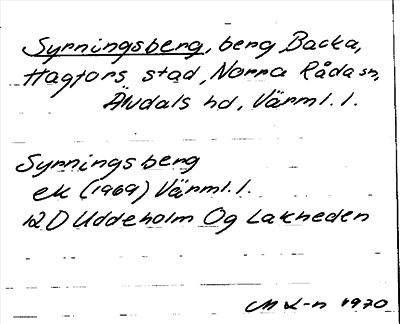 Syrningsberg, berg Backa,
Hagfors stad, Norra Råda sn,
Älvdals hd, Värml. l.
Syrningsberg
ek (1969) Värml. l.
12 D Uddeholm Og Lakheden
M L-n 1970